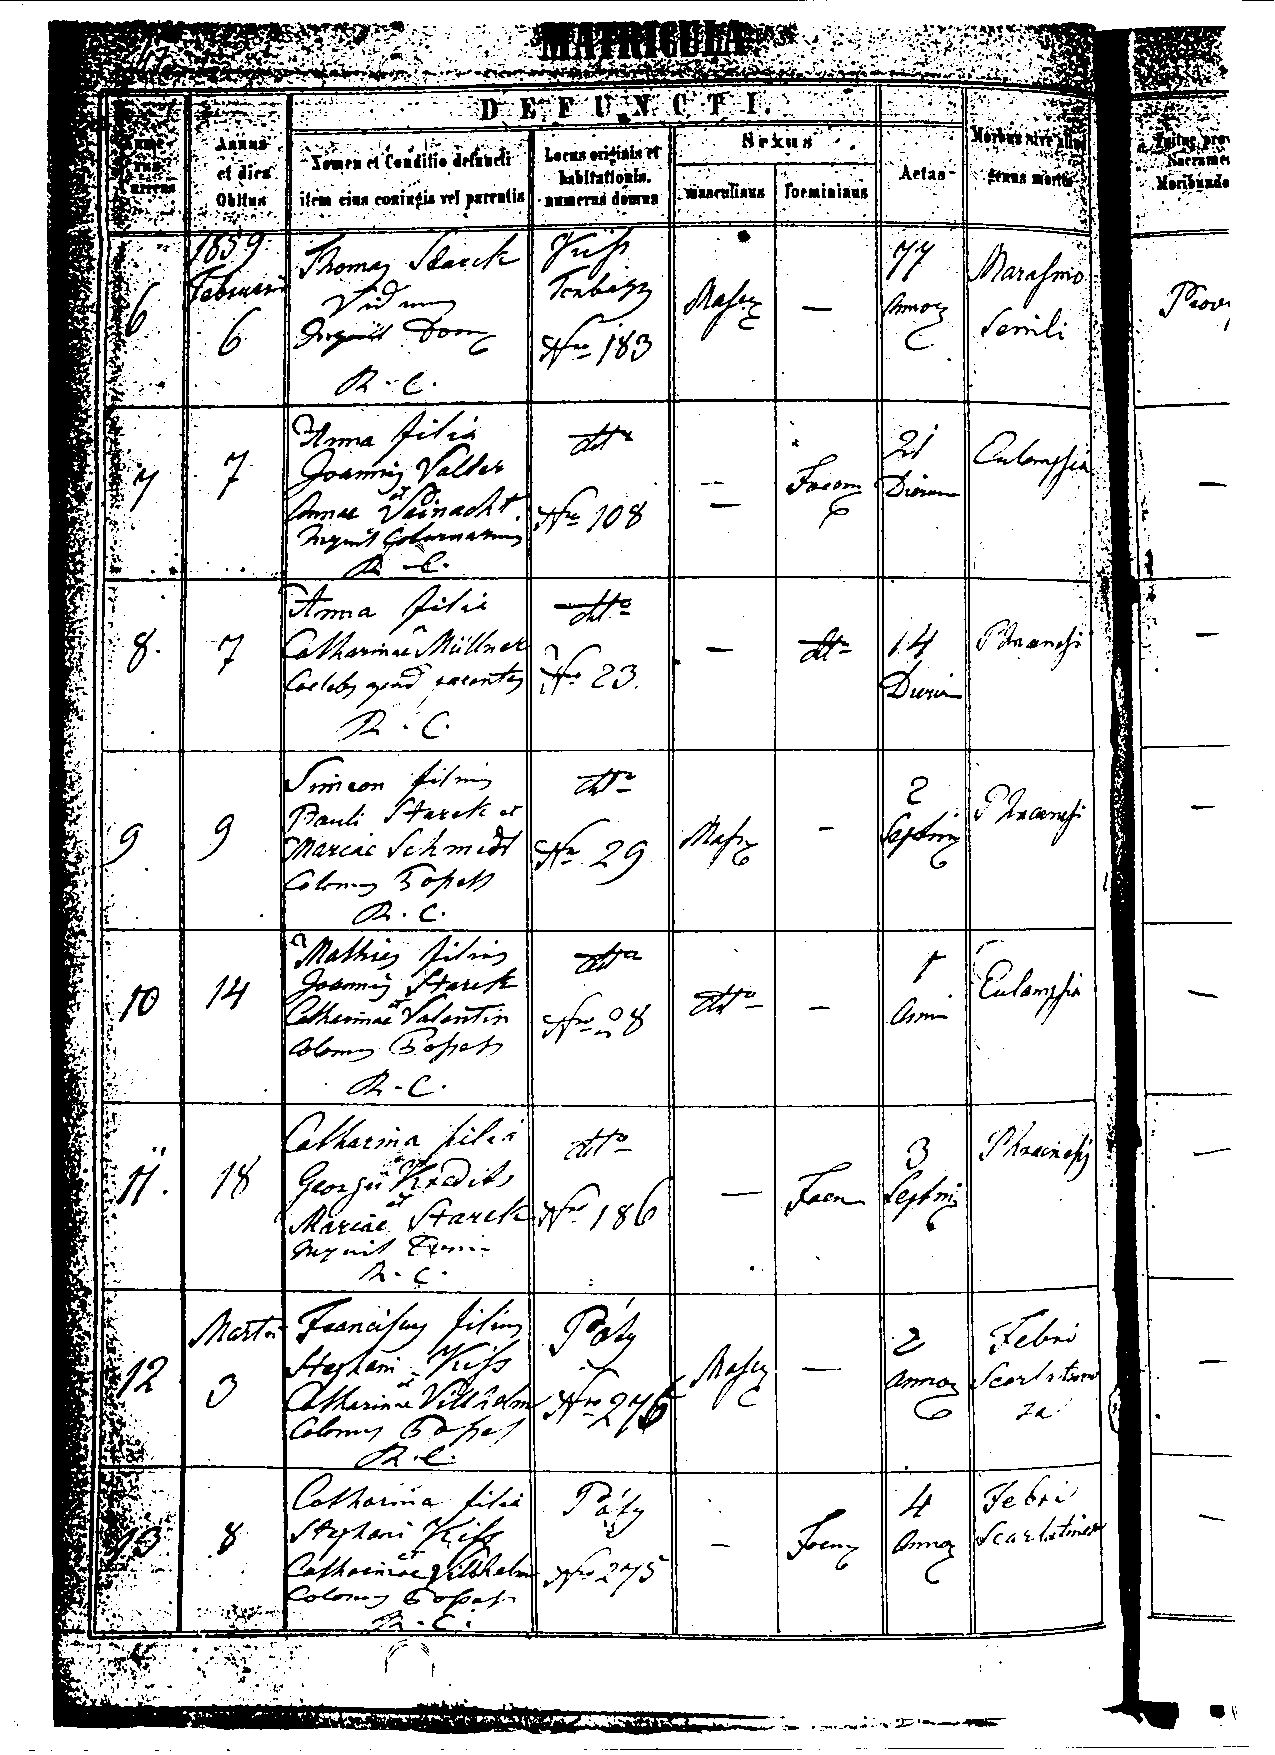 MATRICULA
DEFUNCTI.
Numerus currens
Annus et dies Obitus
Nomen et Conditio defuncti
item eius coniugis vel parentis
Locus originis et habitationis, numerus domus
Sexus
masculinus
foeminius
Aetas
Morbus sive aliud genus mortis
6
1859
Februarii
6
Thomas Starck
Viduus
Inquil Dom
R. C.
Kiss
Nro 183
Masc
—
77
Annor
Marasmo
Senili
Provi
7
7
Anna filia
Joannis Valder
et
Annae Veinacht
Inquil
R. C.
dtto
Nro 108
—
Foem
21
Dierum
Eclampsia
—
8.
7
Anna filia
Catharinae Müllner
Coelebs apud parentes
R. C.
dtto
Nro 23.
—
dtto
14
Dierum
—
9
9
Simeon filius
Pauli Starck et
Mariae Schmidt
Colonus
R. C.
dtto
Nro 29
Masc
—
2
Septim
—
10
14
Mathias filius
Joannis Starck
et
Catharinae Valentin
Colonus
R. C.
dtto
Nro 28
dtto
—
1
Anni
Eclampsia
—
11.
18
Catharina filia
Georgii Kredits
et
Mariae Starck
Inquil
R. C.
dtto
Nro 186
—
Foem
3
Septim
—
12
Martii
3
Franciscus filius
Stephani Kiss
et
Catharinae Vilhelm
Colonus
R. C.
Pály
Masc
—
2
Annor
Febri
Scarlatina
—
13
8
Catharina filia
Stephani Kiss
et
Catharinae Vilhelm
Colonus
R. C.
Pály
Nro 275
—
Foem
4
Annor
Febri
Scarlatina
—